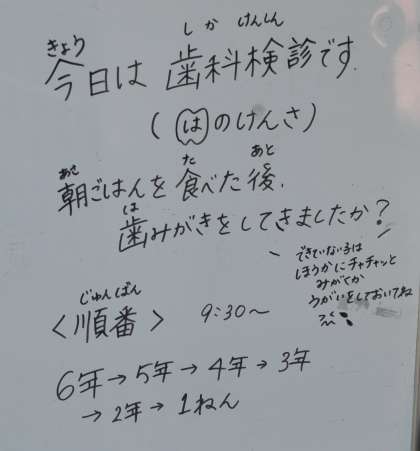 しか けんしん
きょう
今日は 歯科検診です.
(はのけんさ)
あさ た あと
朝ごはんを食べた後.
は
歯みがきをしてきましたか?
できていない子は
ほうかにチャチャッと
みがくか
うがいをしておいてね
じゅんばん
<順番> 9:30~
6年→5年→4年→3年
→2年→1ねん